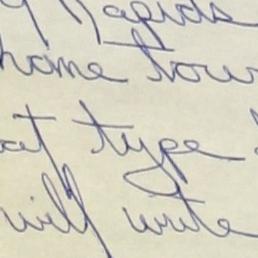 Rapids
home tow
at type
will write